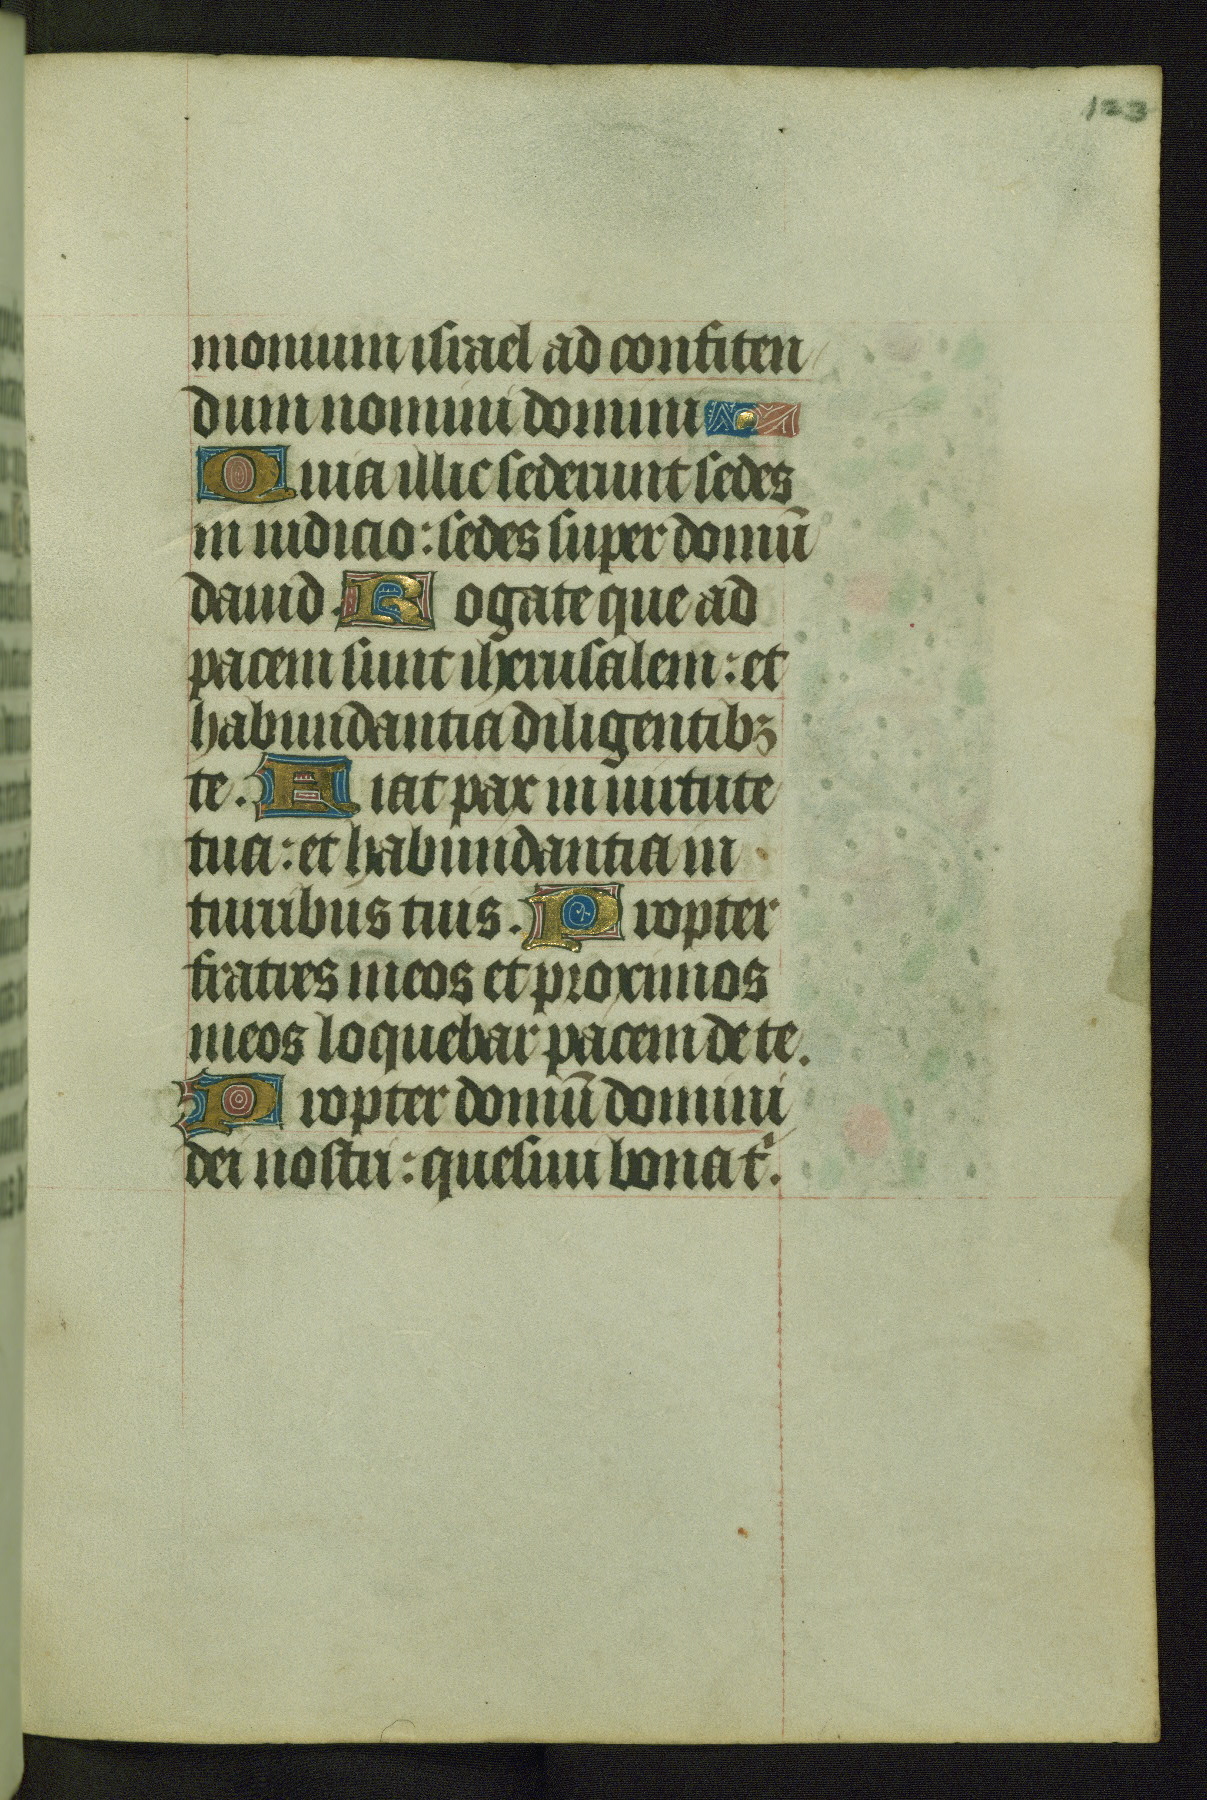 123
monium israel ad confiten
dum nomini domini
Quia illic sederunt sedes
in iudicio : sedes super domū
dauid. Rogate que ad
pacem sunt iherusalem : et
habundantia diligentibꝫ
te. Fiat pax in uirtute
tua : et habundantia in
turribus tuis. Propter
fratres meos et proximos
meos loquebar pacem de te.
Propter domū domini
dei nostri : quesiui bona tⁱ.